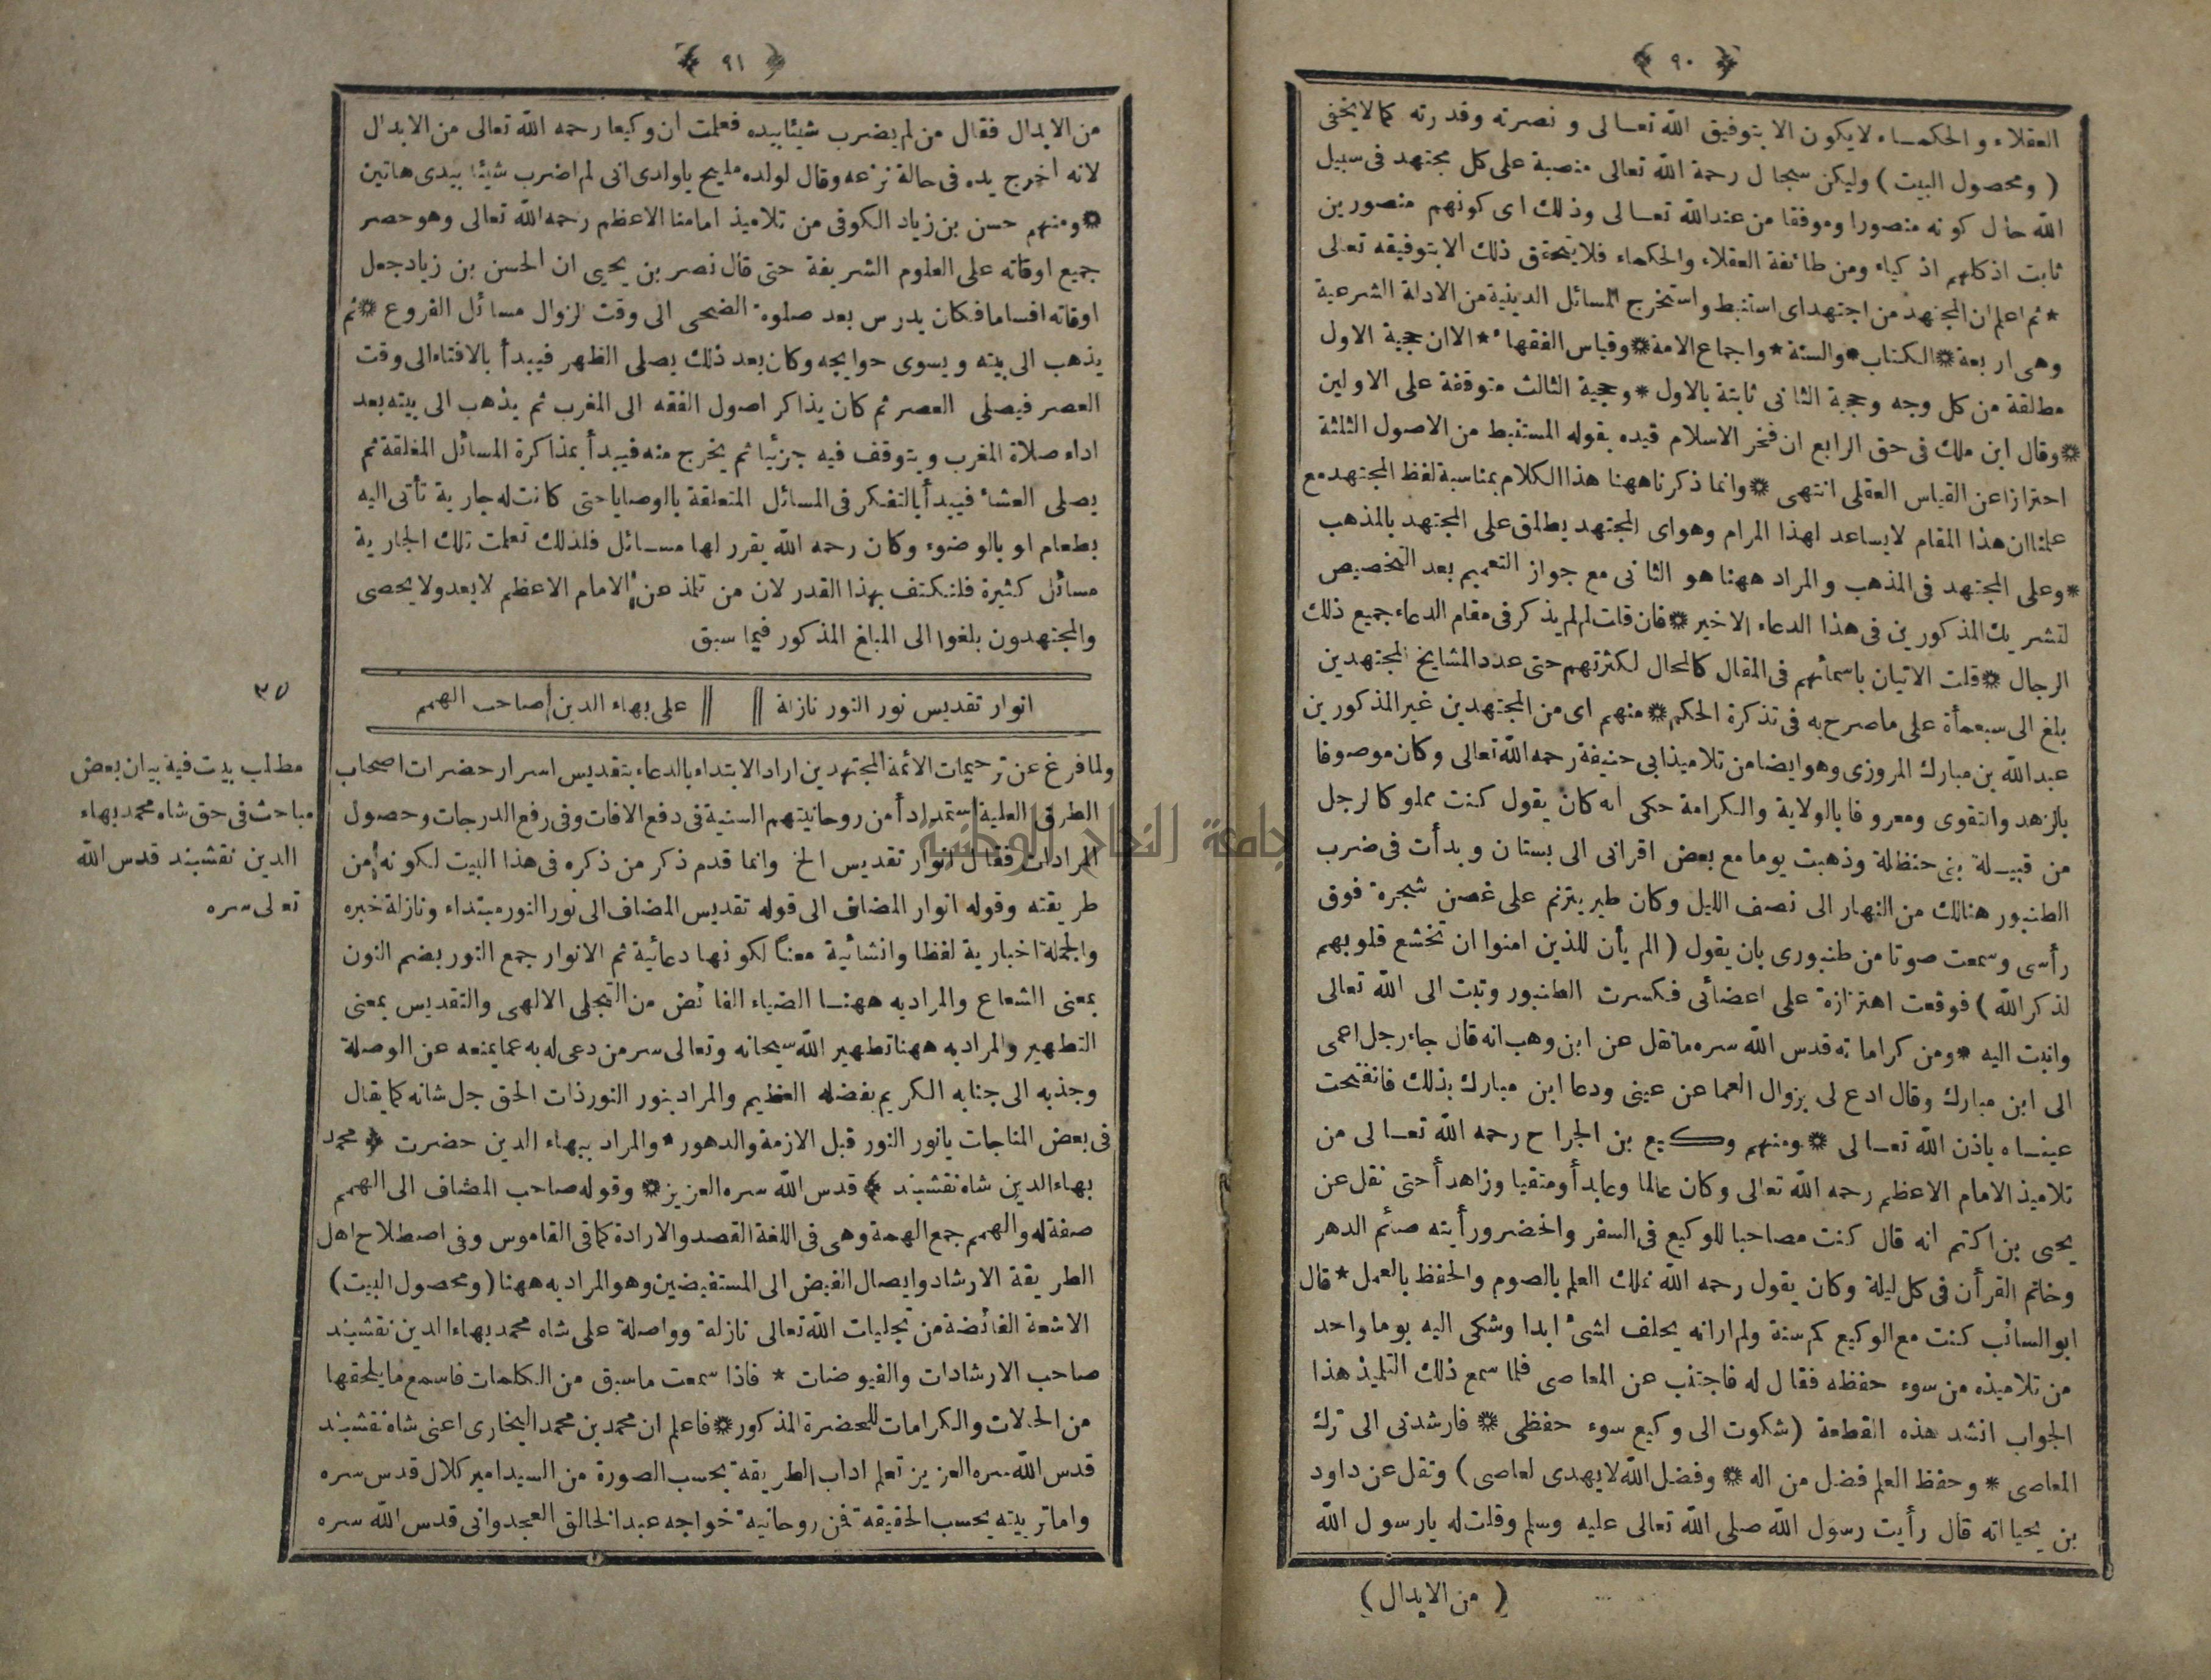 ﴿ ٩٠ ﴾
العقلاء والحكمـاء لا يكون الا بتوفيق الله تعـالى و نصرته وقدرته كما لا يخفى
( ومحصول البيت ) وليكن سجال رحمة الله تعالى منصبة على كل مجتهد فى سبيل
الله حال كونه منصورا وموفقا من عند الله تعـالى وذلك اى كونهم منصورين
ثابت اذ كلهم اذ كياء ومن طائفة العقلاء والحكماء فلا يتحقق ذلك الا بتوفيقه تعالى
* ثم اعلم ان المجتهد من اجتهد اى استنبط واستخرج المسائل الدينية من الادلة الشرعية
وهى اربعة * الكتاب * والسنة * واجماع الامة * وقياس الفقهاء * الا ان حجية الاول
مطلقة من كل وجه وحجية الثانى ثابتة بالاول * وحجية الثالث متوقفة على الاولين
* وقال ابن ملك فى حق الرابع ان فخر الاسلام قيده بقوله المستنبط من الاصول الثلثة
احترازا عن القياس العقلى انتهى * وانما ذكرنا ههنا هذا الكلام بمناسبة لفظ المجتهد مع
علمنا ان هذا المقام لا يساعد لهذا المرام وهو اى المجتهد يطلق على المجتهد بالمذهب
* وعلى المجتهد فى المذهب والمراد ههنا هو الثانى مع جواز التعميم بعد التخصيص
لتشريك المذكورين فى هذا الدعاء الاخير * فان قلت لم لم يذكر فى مقام الدعاء جميع ذلك
الرجال * قلت الاتيان باسمائهم فى المقال كالمحال لكثرتهم حتى عدد المشايخ المجتهدين
بلغ الى سبعمأة على ما صرح به فى تذكرة الحكم * منهم اى من المجتهدين غير المذكورين
عبد الله بن مبارك المروزى وهو ايضا من تلاميذ ابى حنيفة رحمه الله تعالى وكان موصوفا
بالزهد والتقوى ومعروفا بالولاية والكرامة حكى انه كان يقول كنت مملوكا لرجل
من قبيـلة بنى حنظلة وذهبت يوما مع بعض اقرانى الى بستان وبدأت فى ضرب
الطنبور هنالك من النهار الى نصف الليل وكان طير يترنم على غصن شجرة فوق
رأسى وسمعت صوتا من طنبورى بان يقول ( الم يأن للذين امنوا ان تخشع قلوبهم
لذكر الله ) فوقعت اهتزازة على اعضائى فكسرت الطنبور وتبت الى الله تعالى
وانبت اليه * ومن كراماته قدس الله سره ما نقل عن ابن وهب انه قال جاء رجل اعمى
الى ابن مبارك وقال ادع لى بزوال العما عن عينى ودعا ابن مبارك بذلك فانفتحت
عينـاه باذن الله تعـالى * ومنهم وكيع بن الجراح رحمه الله تعـالى من
تلاميذ الامام الاعظم رحمه الله تعالى وكان عالما وعابدأ ومتقيا وزاهدأ حتى نقل عن
يحيى بن اكتم انه قال كنت مصاحبا للوكيع فى السفر والحضر ورأيته صائم الدهر
وخاتم القرأن فى كل ليلة وكان يقول رحمه الله نملك العلم بالصوم والحفظ بالعمل * قال
ابو السائب كنت مع الوكيع كم سنة ولم ار انه يحلف لشئ ابدا وشكى اليه يوما واحد
من تلاميذه من سوء حفظه فقال له فاجتنب عن المعاصى فلما سمع ذلك التلميذ هذا
الجواب انشد هذه القطعة ( شكوت الى وكيع سوء حفظى * فارشدنى الى ترك
المعاصى * وحفظ العلم فضل من اله * وفضل الله لا يهدى لعاصى ) ونقل عن داود
بن يحيا انه قال رأيت رسول الله صلى الله تعالى عليه وسلم وقلت له يا رسول الله
( من الابدال )
﴿ ٩١ ﴾
من الابدال فقال من لم يضرب شيئا بيده فعلمت ان وكيعا رحمه الله تعالى من الابدال
لانه اخرج يده فى حالة نزعه وقال لولده مليح ياولدى انى لم اضرب شيئا بيدى هاتين
* ومنهم حسن بن زياد الكوفى من تلاميذ امامنا الاعظم رحمه الله تعالى وهو حصر
جميع اوقاته على العلوم الشريفة حتى قال نصر بن يحيى ان الحسن بن زياد جعل
اوقاته اقساما فكان يدرس بعد صلوة الضحى الى وقت الزوال مسائل الفروع * ثم
يذهب الى بيته ويسوى حوايجه وكان بعد ذلك يصلى الظهر فيبدأ بالافتاء الى وقت
العصر فيصلى العصر ثم كان يذاكر اصول الفقه الى المغرب ثم يذهب الى بيته بعد
اداء صلاة المغرب ويتوقف فيه جزئيا ثم يخرج منه فيبدأ بمذاكرة المسائل المغلقة ثم
يصلى العشاء فيبدأ بالتفكر فى المسائل المتعلقة بالوصايا حتى كانت له جارية تأتى اليه
بطعام او بالوضوء وكان رحمه الله يقرر لها مسـائل فلذلك تعلمت تلك الجارية
مسائل كثيرة فلنكتف بهذا القدر لان من تلمذ عن الامام الاعظم لا يعد ولا يحصى
والمجتهدون بلغوا الى المبلغ المذكور فيما سبق
انوار تقديس نور النور نازلة || || على بهاء الدين صاحب الهمم
٣٥
ولما فرغ عن ترحيمات الائمة المجتهدين اراد الابتداء بالدعاء بتقديس اسرار حضرات اصحاب
الطرق العلية استمدادأ من روحانيتهم السنية فى دفع الافات وفى رفع الدرجات وحصول
المرادات فقال انوار تقديس الخ وانما قدم ذكر من ذكره فى هذا البيت لكونه من
طريقته وقوله انوار المضاف الى قوله تقديس المضاف الى نور النور مبتداء ونازلة خبره
والجملة اخبارية لفظا وانشائية معناً لكونها دعائية ثم الانوار جمع النور بضم النون
بمعنى الشعاع والمراد به ههنـا الضياء الفائض من التجلى الالهى والتقديس بمعنى
التطهير والمراد به ههنا تطهير الله سبحانه وتعالى سر من دعى له به عما يمنعه عن الوصلة
وجذبه الى جنابه الكريم بفضله العظيم والمراد بنور النور ذات الحق جل شانه كما يقال
فى بعض المناجات يا نور النور قبل الازمة والدهور * والمراد ببهاء الدين حضرت ﴿ محمد
بهاء الدين شاه نقشبند ﴾ قدس الله سره العزيز * وقوله صاحب المضاف الى الهمم
صفة له والهمم جمع الهمة وهى فى اللغة القصد والارادة كما فى القاموس وفى اصطلاح اهل
الطريقة الارشاد وايصال الفيض الى المستفيضين وهو المراد به ههنا ( ومحصول البيت )
الاشعة الفائضة من تجليات الله تعالى نازلة وواصلة على شاه محمد بهاء الدين نقشبند
صاحب الارشادات والفيوضات * فاذا سمعت ما سبق من الكلمات فاسمع ما يلحقها
من الحالات والكرامات للحضرة المذكور * فاعلم ان محمد بن محمد البخارى اعنى شاه نقشبند
قدس الله سره العزيز تعلم اداب الطريقة بحسب الصورة من السيد امير كلال قدس سره
واما تربيته بحسب الحقيقة فمن روحانية خواجه عبد الخالق الغجدوانى قدس الله سره
مطلب بيت فيه بيان بعض
مباحث فى حق شاه محمد بهاء
الدين نقشبند قدس الله
تعالى سره
جامعة النجاح الوطنية